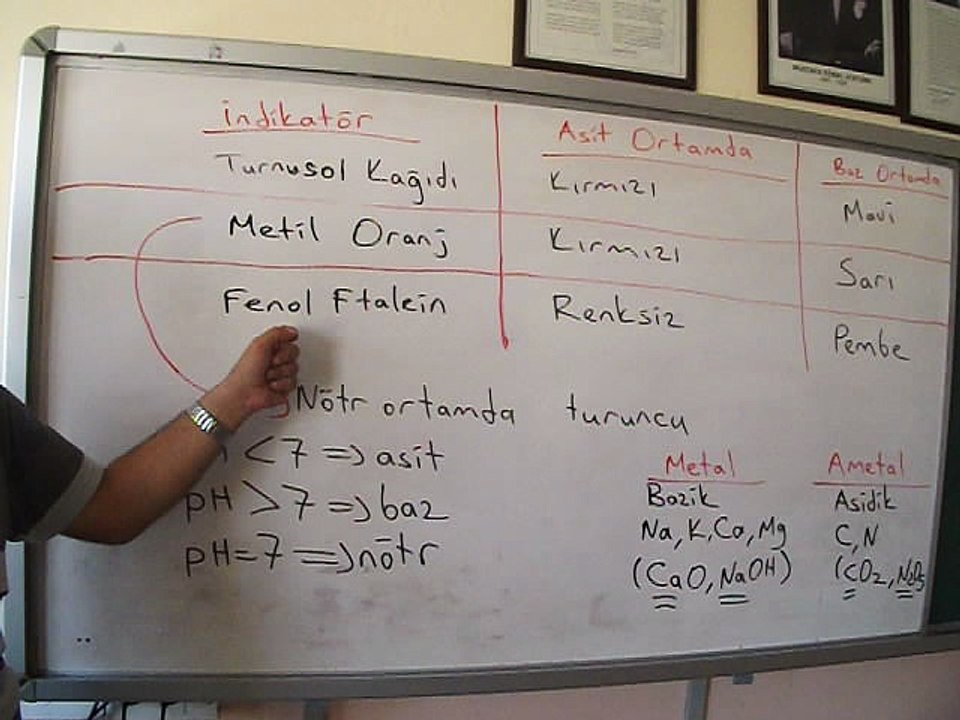 İndikatör Asit Ortamda Baz Ortamda
Turnusol Kağıdı Kırmızı Mavi
Metil Oranj Kırmızı Sarı
Fenol Ftalein Renksiz Pembe
Nötr ortamda turuncu
< 7 => asit
pH > 7 => baz
pH = 7 => nötr
Metal Ametal
Bazik Asidik
Na, K, Ca, Mg C, N
(CaO, NaOH) (CO2, N2O5